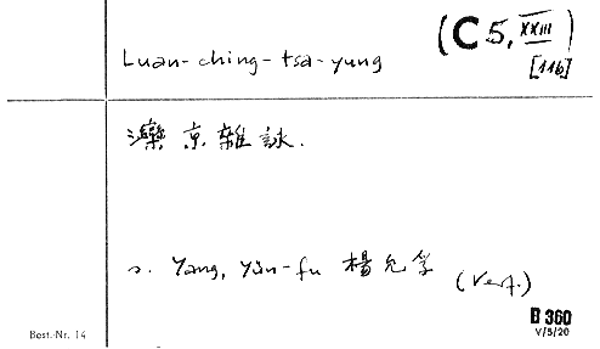 Luan-ching-tsa-yung
(C 5, XXIII)
[11b]
灤京雜詠.
s. Yang, Yün-fu 楊允孚 (Verf.)
B 360
V/5/20
Best.-Nr. 14